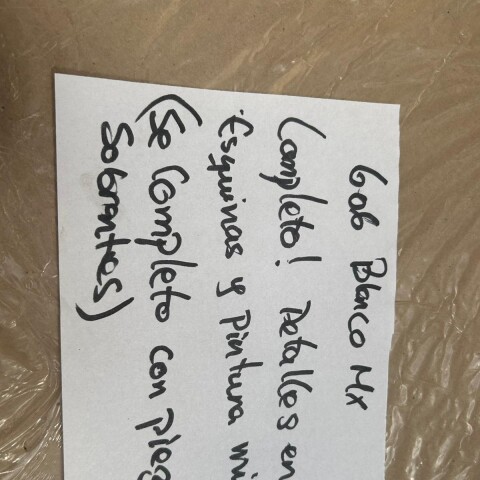 Gab Blanco Mx
Completo! Detalles en
Esquinas y Pintura mi
(Se Completo con pieg
Sobrantes)